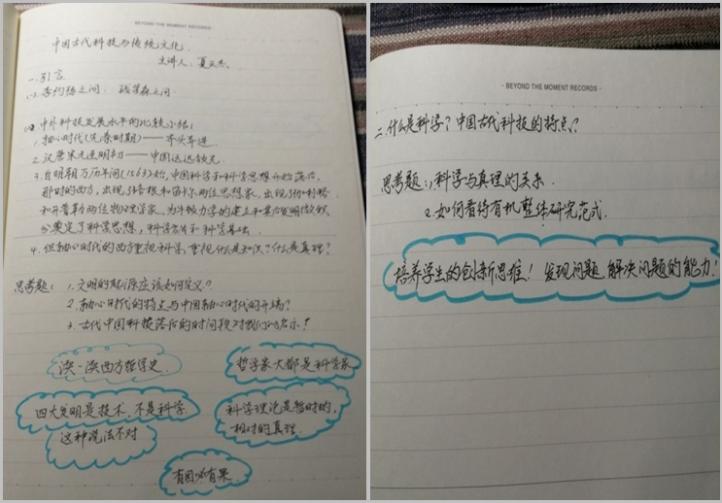 - BEYOND THE MOMENT RECORDS -
中国古代科技与传统文化.
主讲人: 夏
一. 引言
(一) 李约瑟之问. 钱学森之问.
中外科技发展水平的比较小结:
1. 轴心时代(先秦时期)——齐头并进.
2. 汉唐宋元连明初——中国远远领先.
3. 自明朝万历年间(1563)始, 中国科学和科学思想开始落后,
那时的西方, 出现了培根和笛卡尔两位思想家, 出现了伽利略
和开普勒两位物理学家, 为牛顿力学的建立和蒸汽机做
奠定了科学思想, 科学方法和科学基础.
4. 但轴心时代的西方重视科学, 重视什么是知识? 什么是真理?
思考题: 1. 文明的起源应该如何定义?
2. 轴心时代的特点与中国轴心时代的开端?
3. 古代中国科技落后的时间段对我们的启示!
读一读西方哲学史.
哲学家大都是科学家
四大发明是技术, 不是科学
这种说法不对
科学理论是暂时的,
相对的真理.
有因必有果.
- BEYOND THE MOMENT RECORDS -
二. 什么是科学? 中国古代科技的特点?
思考题: 1. 科学与真理的关系.
2. 如何看待有机整体研究范式.
培养学生的创新思维! 发现问题, 解决问题的能力!